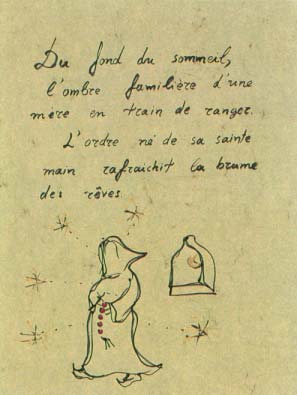 Du fond du sommeil,
l'ombre familière d'une
mère en train de ranger.
L'ordre né de sa sainte
main rafraichit la brume
des rêves.